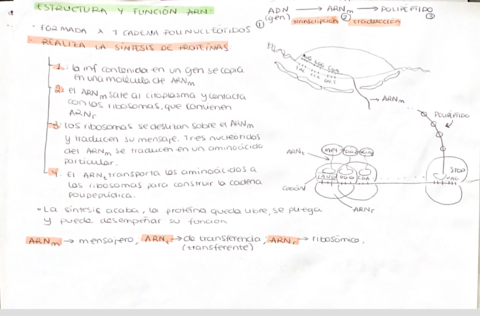 ESTRUCTURA Y FUNCIÓN ARN
- FORMADA X 1 CADENA POLINUCLEÓTIDOS
- REALIZA LA SÍNTESIS DE PROTEÍNAS
1. la inf contenida en un gen se copia
en una molécula de ARNm
2. el ARNm sale al citoplasma y contacta
con los ribosomas, que contienen
ARNr
3. Los ribosomas se deslizan sobre el ARNm
y traducen su mensaje. Tres nucleótidos
del ARNm se traducen en un aminoácido
particular.
4. El ARNt transporta los aminoácidos a
los ribosomas para construir la cadena
polipeptídica.
- La síntesis acaba, la proteína queda libre, se pliega
y puede desempeñar su función
ARNm → mensajero, ARNt → de transferencia, ARNr → ribosómico.
(transferente)
ADN → ARNm → POLIPÉPTIDO
(gen) transcripción traducción
① ② ③
→ ARNm
POLIPÉPTIDO
ARNt
STOP
CODÓN
ARNr